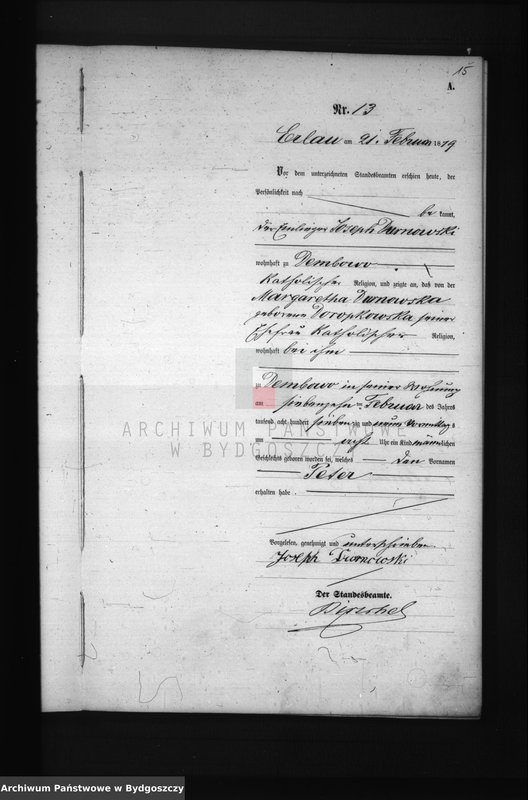 15
A.
Nr. 13
Erlau am 21. Februar 1879
Vor dem unterzeichneten Standesbeamten erschien heute, der
Persönlichkeit nach
be kannt,
der Einlieger Joseph Durnowski
wohnhaft zu Dembowo
katholischer Religion, und zeigte an, daß von der
Margaretha Durnowska
geborene Doropkowska seiner
Ehefrau katholischer Religion,
wohnhaft bei ihm
zu Dembowo in seiner Wohnung
am siebenzehn ten Februar des Jahres
tausend acht hundert sieben zig und neun Vormittags
um acht Uhr ein Kind männlichen
Geschlechts geboren worden sei, welches den Vornamen
Peter
erhalten habe.
Vorgelesen, genehmigt und unterschrieben.
Joseph Durnowski
Der Standesbeamte.
ARCHIWUM PAŃSTWOWE
W BYDGOSZCZY
Archiwum Państwowe w Bydgoszczy